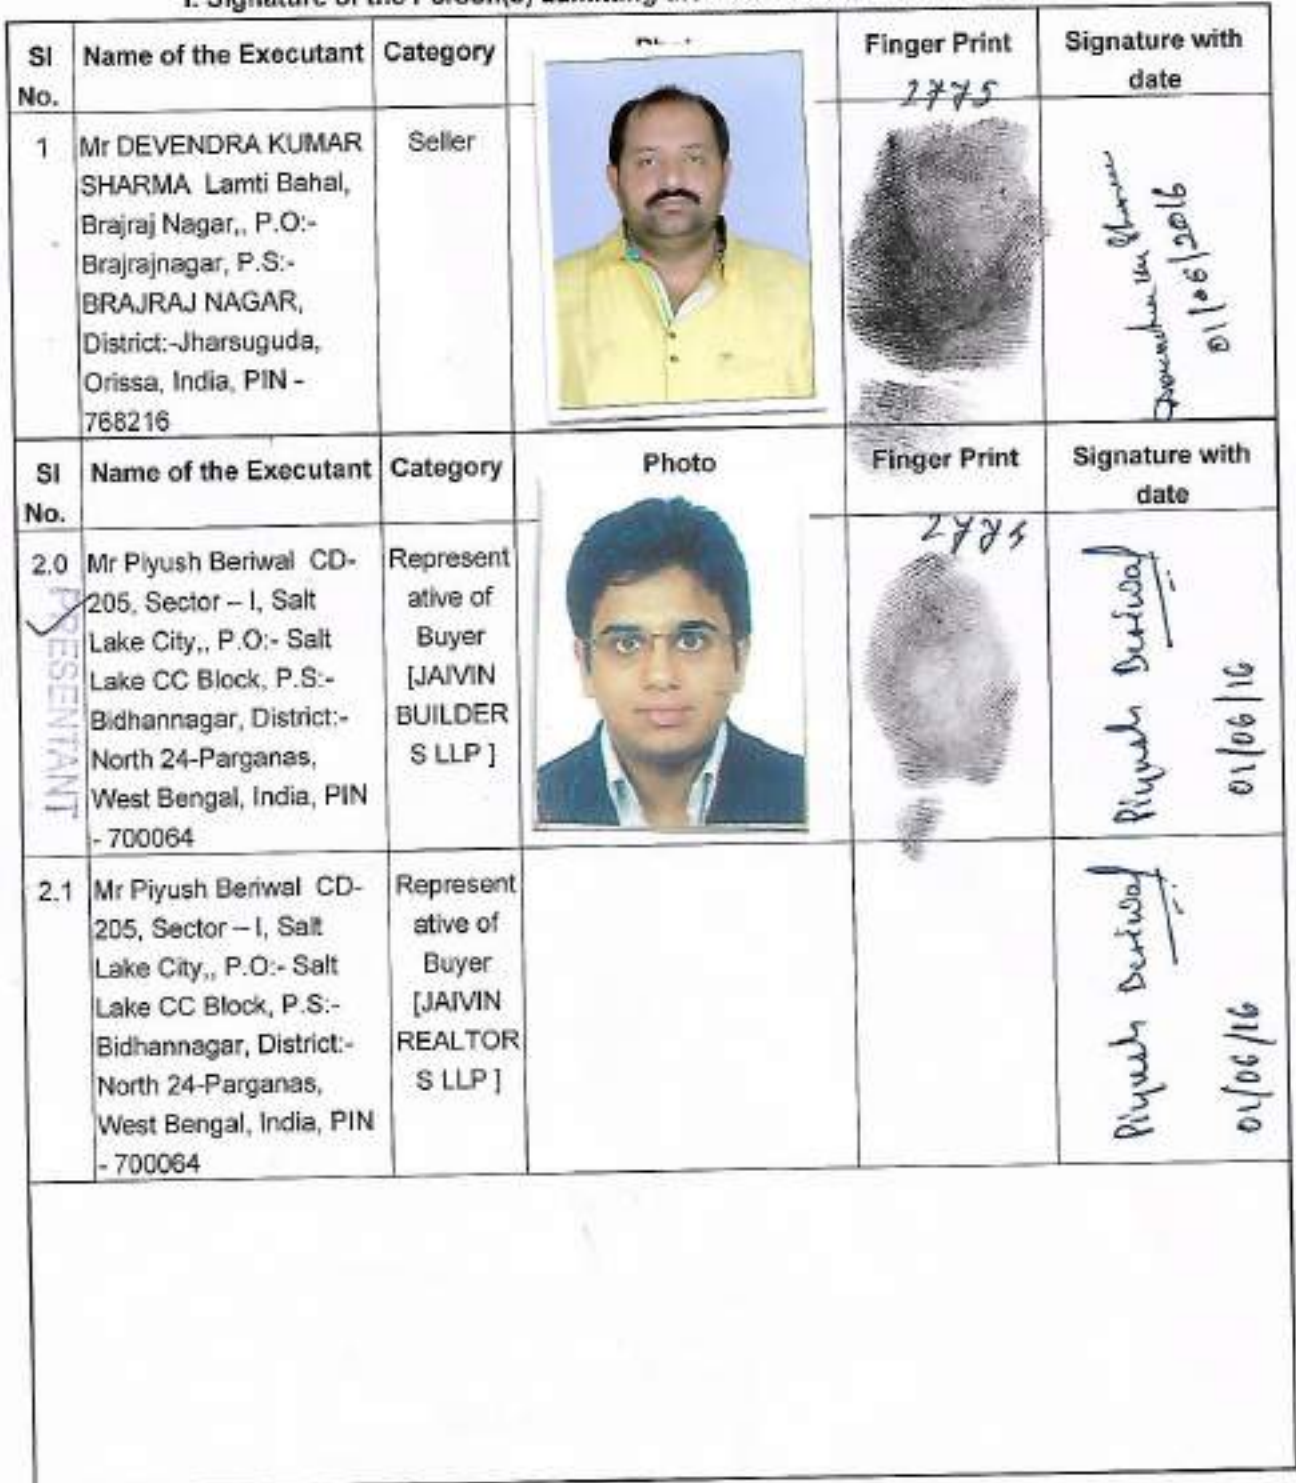 I. Signature of the Person(s) admitting
Sl No.
Name of the Executant
Category
Finger Print
Signature with date
2775
1
Mr DEVENDRA KUMAR
SHARMA Lamti Bahal,
Brajraj Nagar,, P.O:-
Brajrajnagar, P.S:-
BRAJRAJ NAGAR,
District:-Jharsuguda,
Orissa, India, PIN -
768216
Seller
01/06/2016
Sl No.
Name of the Executant
Category
Photo
Finger Print
Signature with date
2.0
PRESENTANT
Mr Piyush Beriwal CD-
205, Sector – I, Salt
Lake City,, P.O:- Salt
Lake CC Block, P.S:-
Bidhannagar, District:-
North 24-Parganas,
West Bengal, India, PIN
- 700064
Represent
ative of
Buyer
[JAIVIN
BUILDER
S LLP ]
Piyush Beriwal
01/06/16
2.1
Mr Piyush Beriwal CD-
205, Sector – I, Salt
Lake City,, P.O:- Salt
Lake CC Block, P.S:-
Bidhannagar, District:-
North 24-Parganas,
West Bengal, India, PIN
- 700064
Represent
ative of
Buyer
[JAIVIN
REALTOR
S LLP ]
Piyush Beriwal
01/06/16